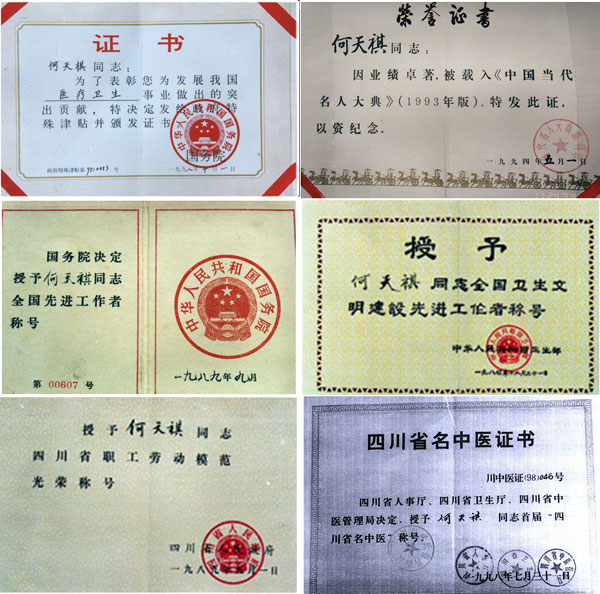 证书
何天祺同志：
为了表彰您为发展我国
医疗卫生事业做出的突
出贡献，特决定发给政府特
殊津贴并颁发证书
中华人民共和国国务院
国务院
政府特殊津贴第
号
荣誉证书
何天祺同志：
因业绩卓著，被载入《中国当代
名人大典》（1993年版），特发此证，
以资纪念。
一九九四年五月一日
国务院决定
授予何天祺同志
全国先进工作者
称号
第 00607 号
中华人民共和国国务院
一九八九年九月
授予
何天祺同志全国卫生文
明建设先进工作者称号
中华人民共和国卫生部
授予何天祺同志
四川省职工劳动模范
光荣称号
四川省人民政府
一九八九年五月一日
四川省名中医证书
川中医证(98)046号
四川省人事厅、四川省卫生厅、四川省中
医管理局决定，授予何天祺同志首届“四
川省名中医”称号。
一九九八年七月三十一日